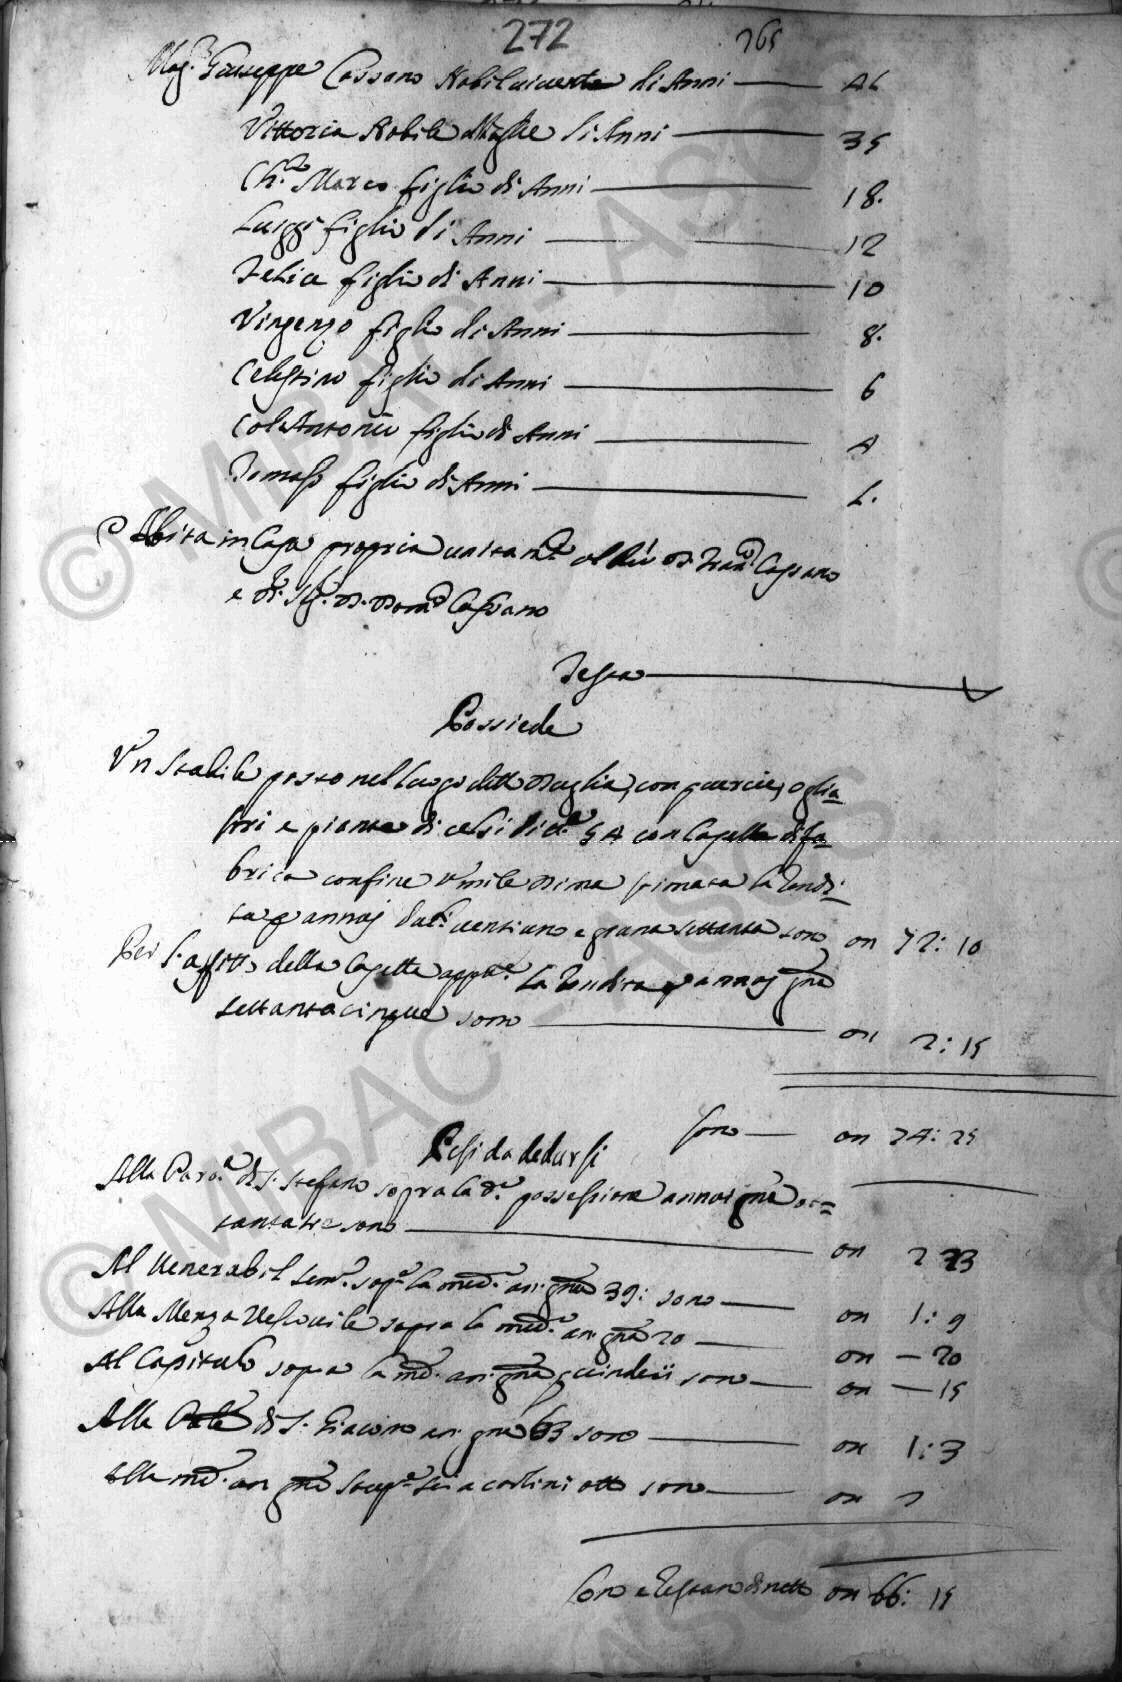 272 265
Mag.co Giuseppe Cassano Nobil vivente di Anni — 46
Vittoria Nobile Moglie di Anni — 35
Ch.o Marco figlio di Anni — 18.
Luiggi figlio di Anni — 12
Felice figlio di Anni — 10
Vingenzo figlio di Anni — 8.
Celestino figlio di Anni — 6
Col'Antonio figlio di Anni — 4
Tomaso figlio di Anni — 2.
Abita in Casa propria unitam.te D. Fran.co Cassano
e D. Dom.co Cassano
Testa —
Possiede
Un stabile posto nel luogo detto Duglia, con quercie, oglia-
stri e piante di celsi di 54 con Casella di fa-
brica confine stimata la Rendi-
ta p annoj dul: ventiuno e grana settanta sono on 72: 10
Per l'affitto della Casetta app.ta La Rendita p annoj gna
settantacinque sono — on 2: 15
sono — on 74: 25
Pesi da dedursi
Alla Paro.a di S. Stefano sopra la d.a possessione annoi gna ot=
tantatre sono — on 2 23
Al Venerabil Sem.o sop.a la med.a an: gna 39: sono — on 1: 9
Alla Menza Vescovile sopra la med.a an: gna 20 — on — 20
Al Capitulo sopra la md.a an: gna quindeci sono — on — 15
Alla di S. Giacomo an: gna 63 sono — on 1: 3
Alla md.a an: gna carlini otto sono — on 2
Sono e restano di netto on 66: 15
© MBAC - ASCS
© MBAC - ASCS